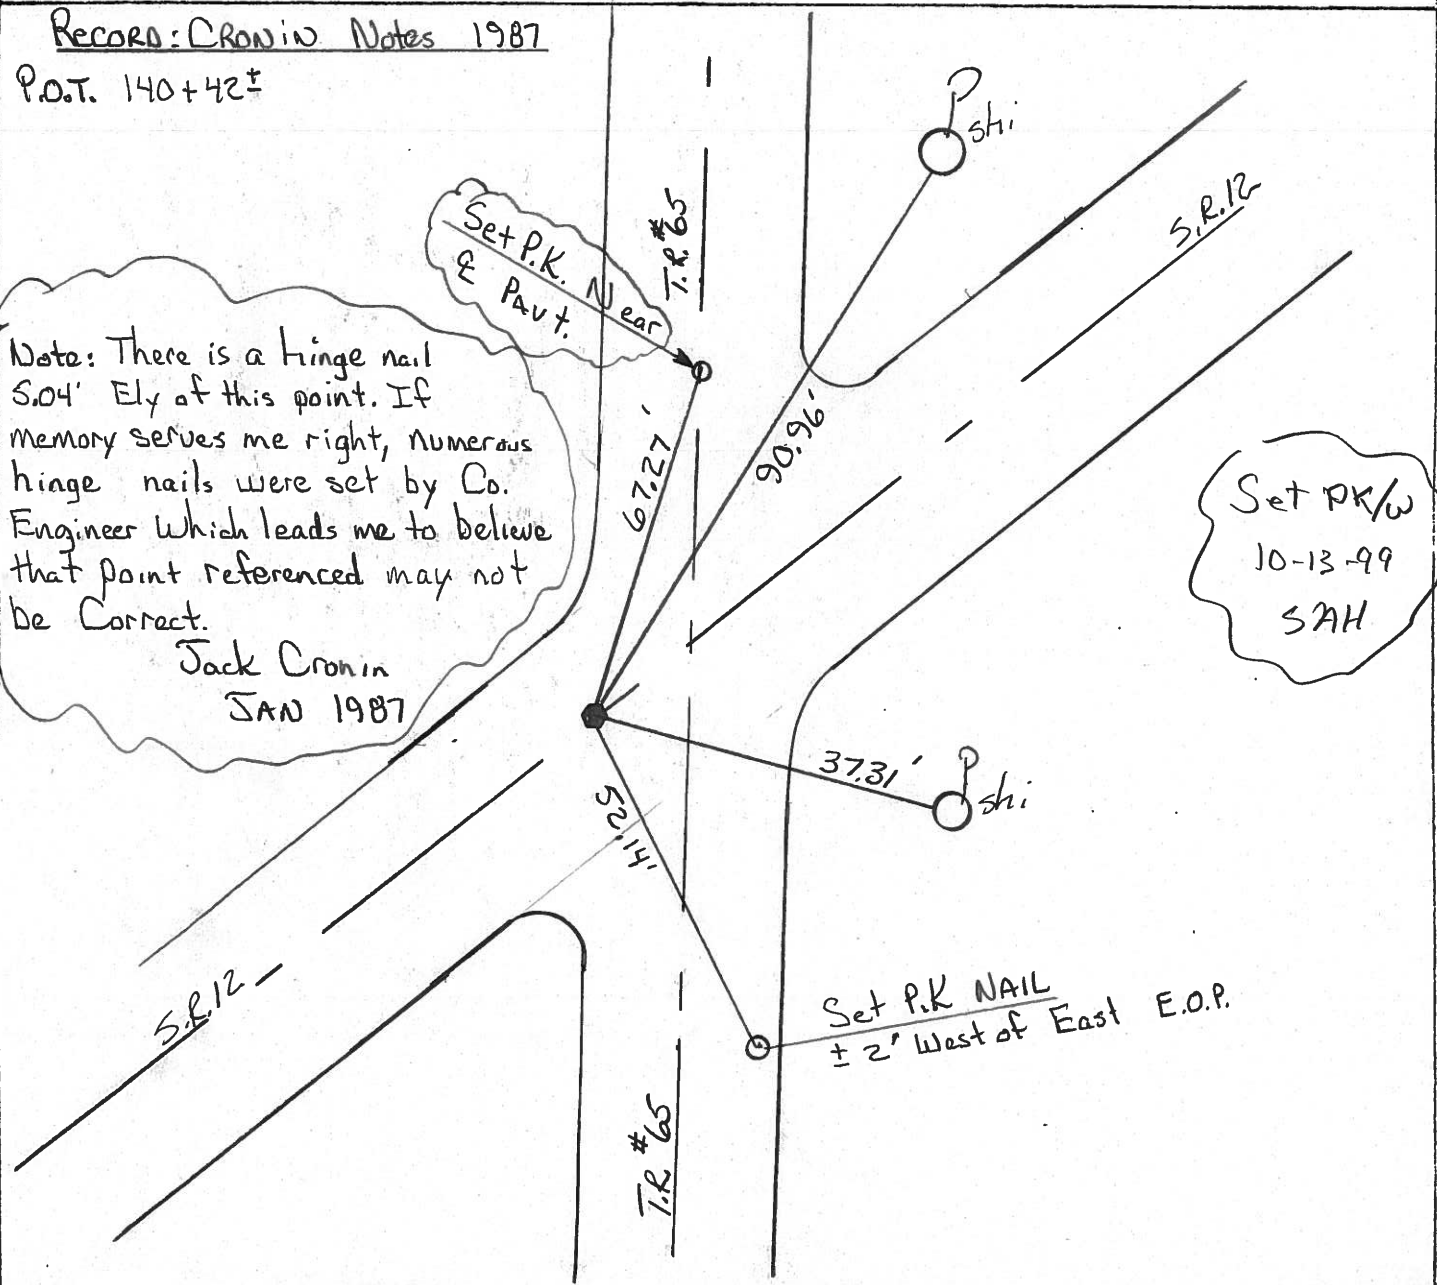 RECORD: CRONIN Notes 1987
P.O.T. 140+42±
P
shi
S.R.12
T.R.#65
Set P.K. Near
℄ PAVt.
Note: There is a hinge nail
5.04' Ely of this point. If
memory serves me right, numerous
hinge nails were set by Co.
Engineer Which leads me to believe
that point referenced may not
be Correct.
Jack Cronin
JAN 1987
67.27'
90.96'
Set PK/W
10-13-99
SAH
37.31'
P
shi
52.14'
S.R.12
Set P.K NAIL
± 2' West of East E.O.P.
T.R.#65